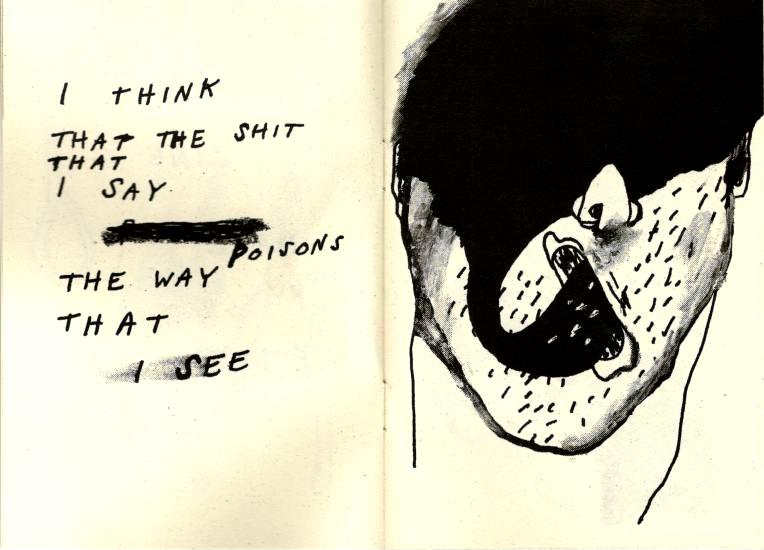 I THINK
THAT THE SHIT
THAT
I SAY
POISONS
THE WAY
THAT
I SEE